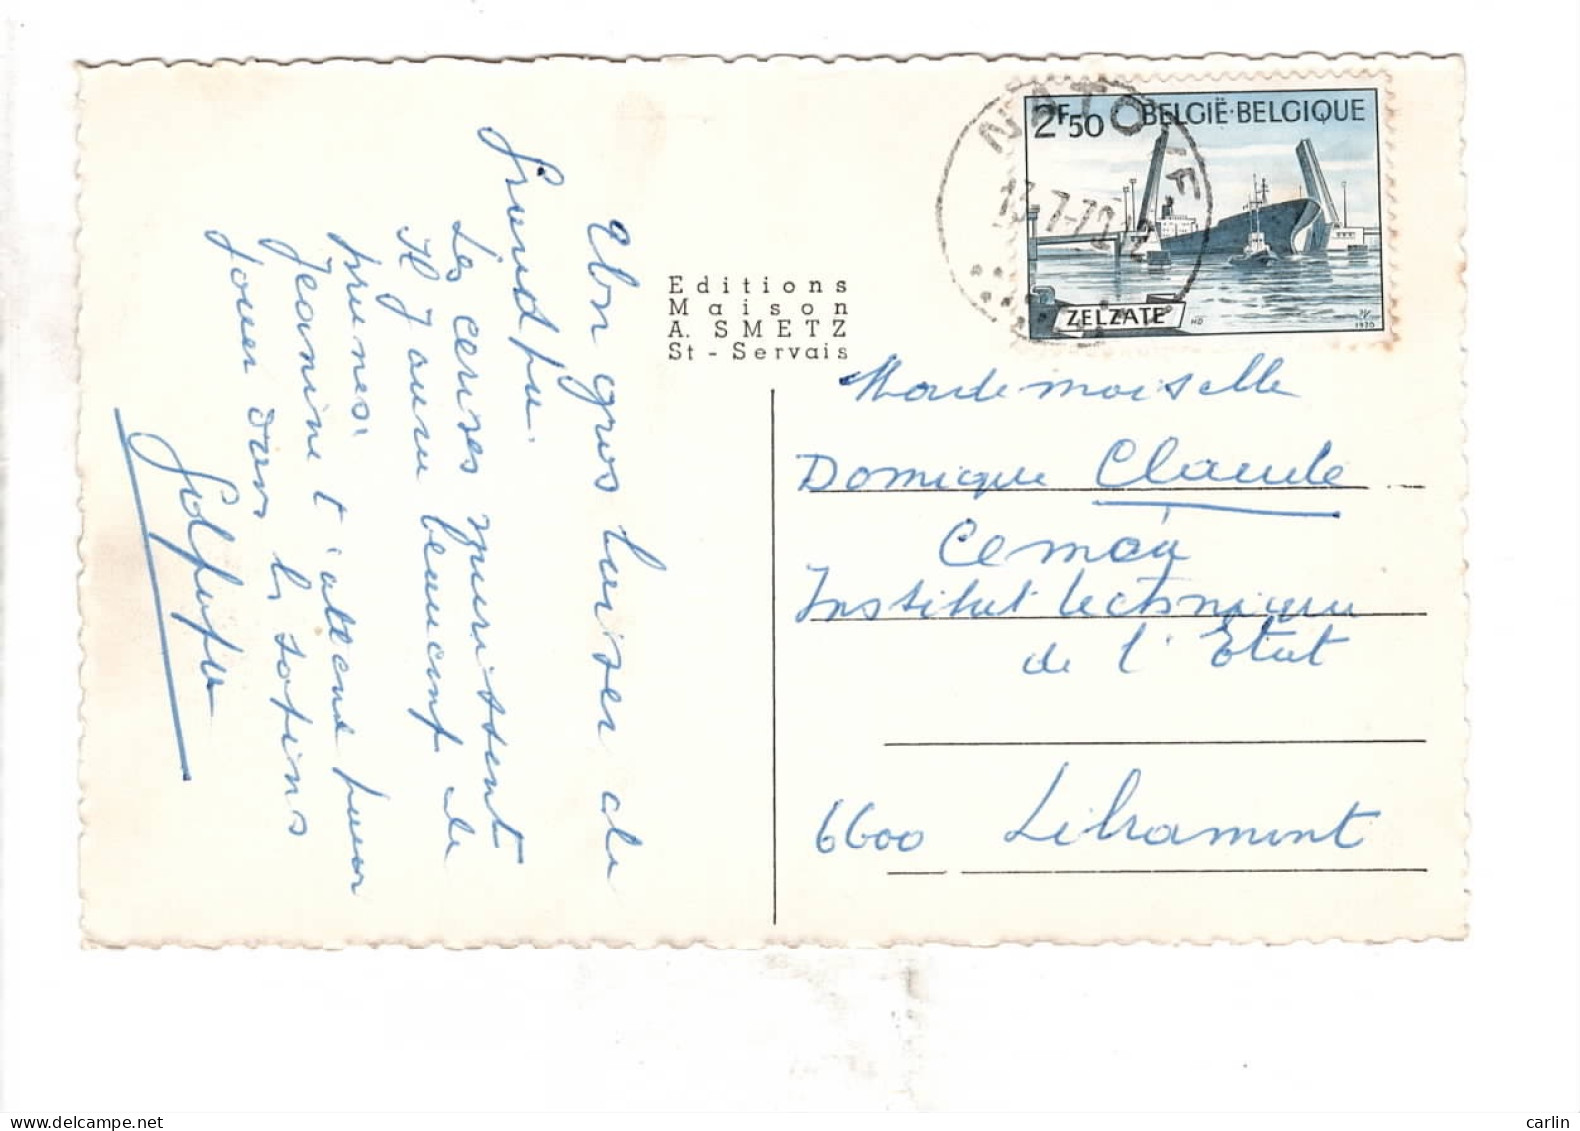 Un gros baiser de
Grand pa.
Les cerises murissent
Il y aura beaucoup de
prunes.
Jeanine t'attend pour
jouer dans les sapins
Editions
Maison
A. SMETZ
St - Servais
NATOYE
13-7-70 12
2F50 BELGIË·BELGIQUE
ZELZATE
HD
1970
Mademoiselle
Domique Claude
Institut technique
de l'Etat
6600 Libramont
carlin
delcampe.net